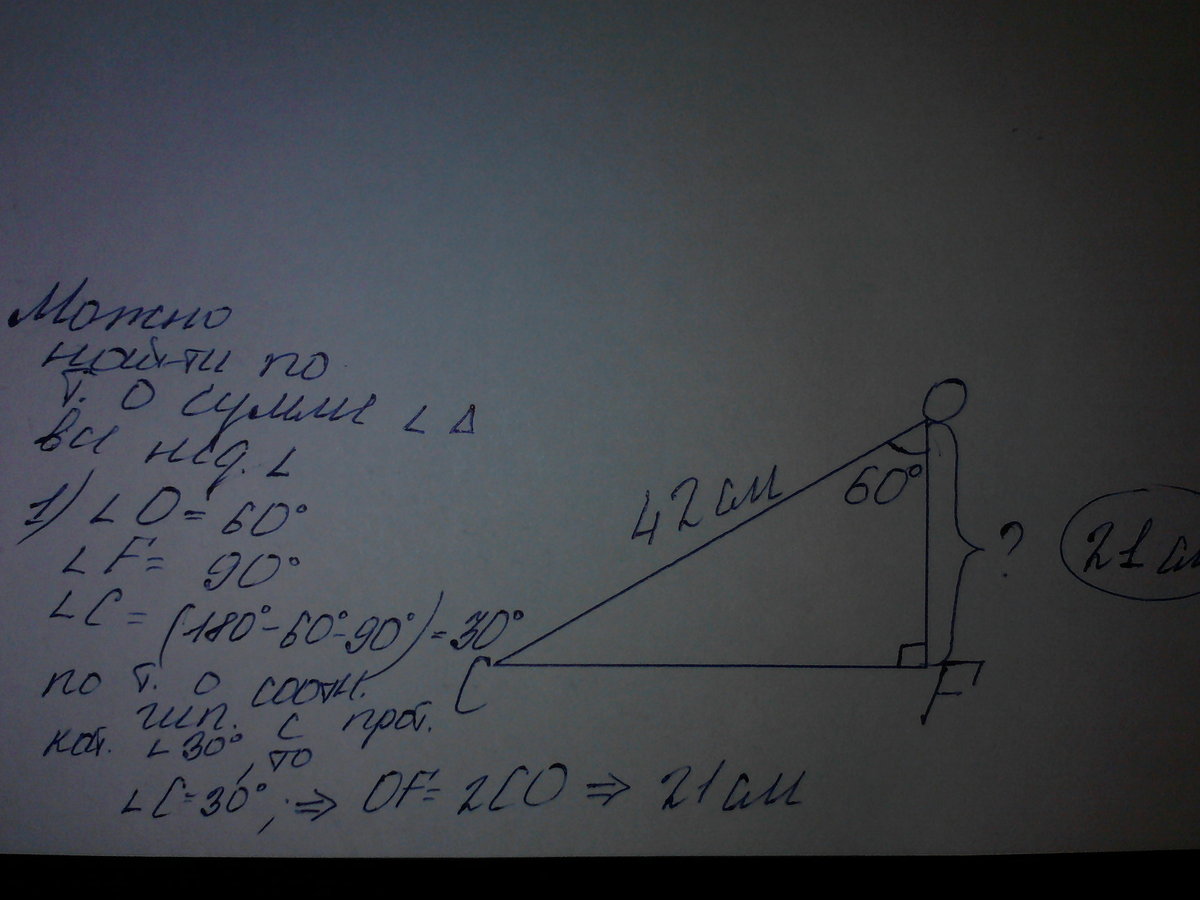 Можно
найти по
т. О сумме ∠ Δ
все нед. ∠
1) ∠O = 60°
∠F = 90°
∠C = (180°-60°-90°) = 30°
по т. о соотн.
гип. с прот.
кат. ∠30°, то
∠C=30°; ⇒ OF = 2CO ⇒ 21 см
42 см
60°
O
?
21 см
C
F